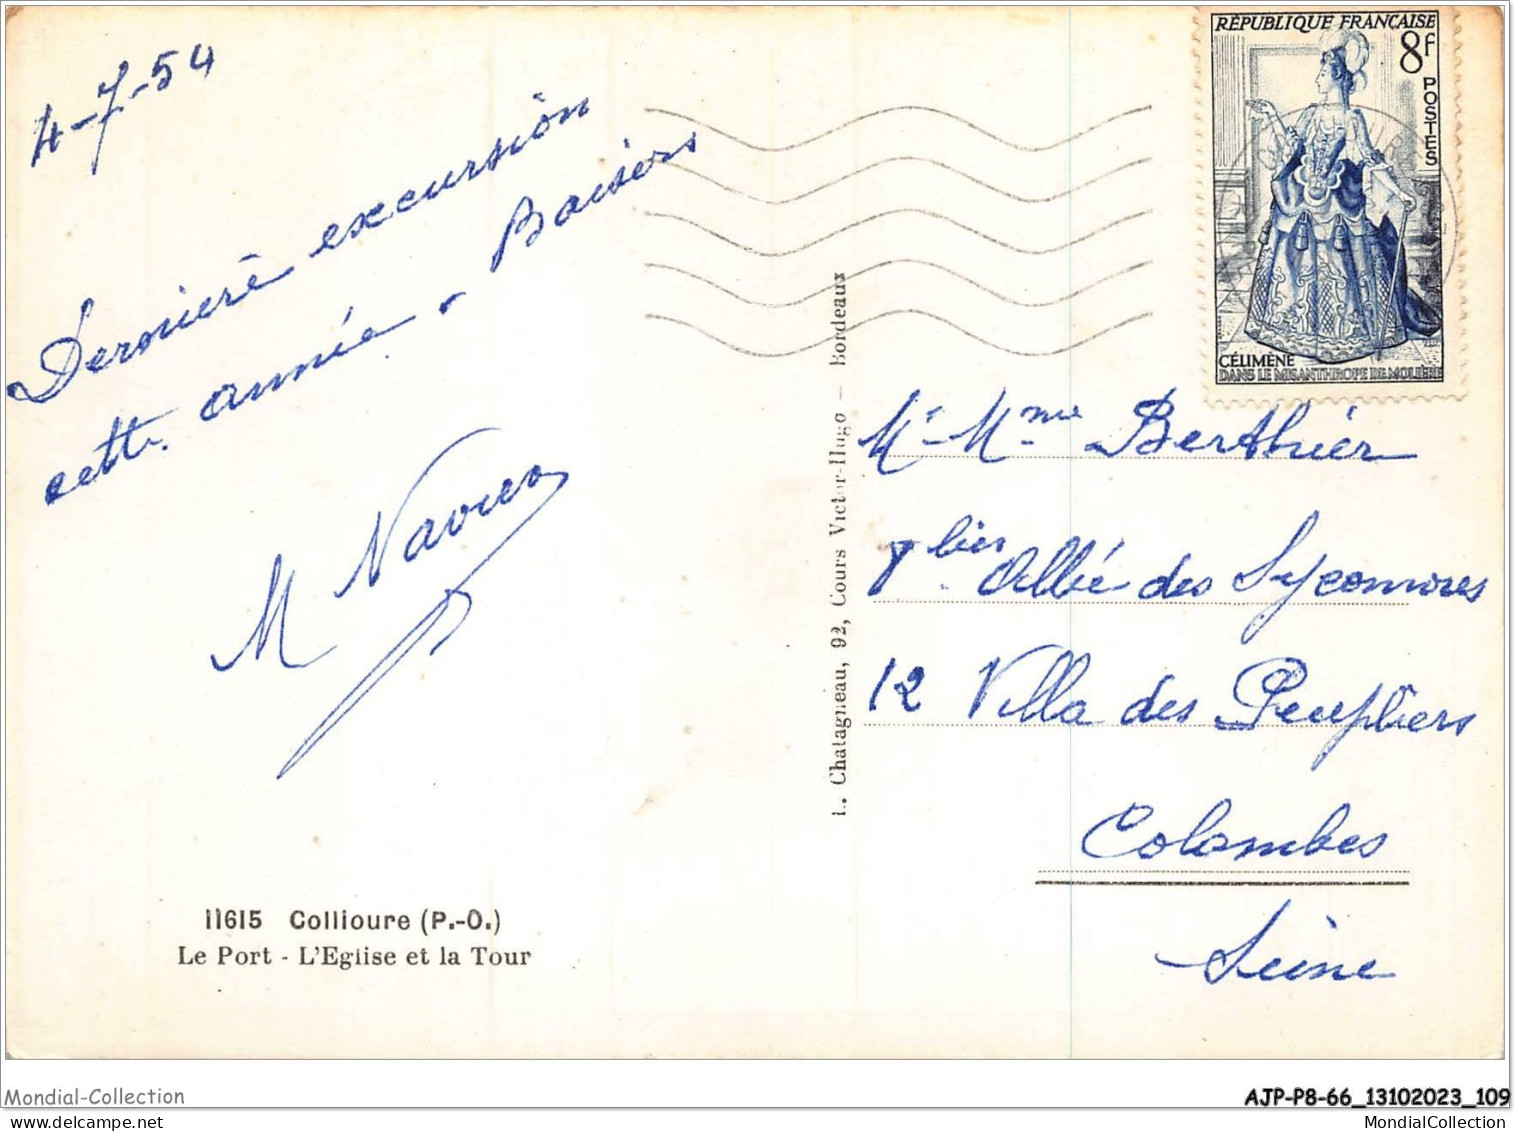 4-7-54
Dernière excursion
cette année - Baisers
M Navier
11615 Collioure (P.-O.)
Le Port - L'Eglise et la Tour
L. Chatagneau, 92, Cours Victor-Hugo - Bordeaux
RÉPUBLIQUE FRANÇAISE
8f
POSTES
CÉLIMÈNE
DANS LE MISANTHROPE DE MOLIÈRE
Mr Mme Berthier
allée des Sycomores
12 Villa des Peupliers
Colombes
Seine
Mondial-Collection
AJP-P8-66_13102023_109
MondialCollection